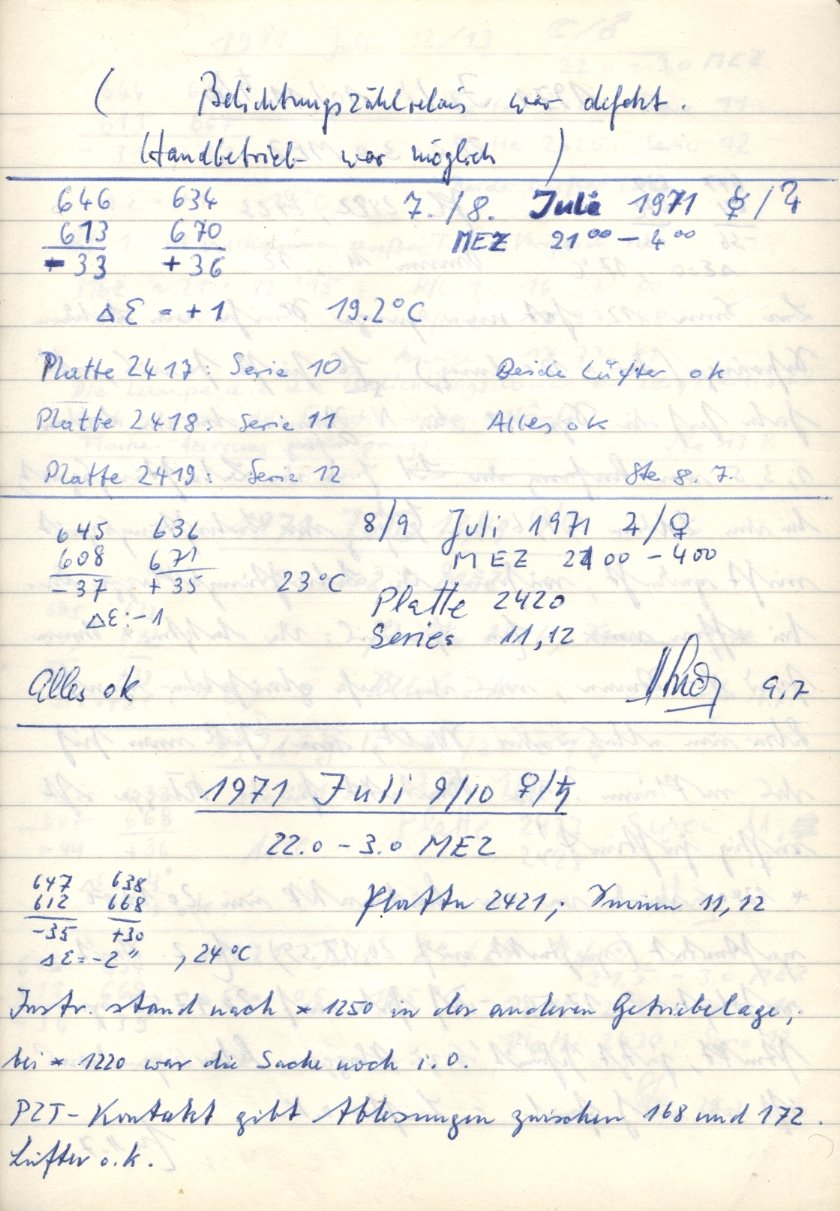 ( Belichtungszählrelais war defekt.
Handbetrieb war möglich )
646 634 7./8. Juli 1971 ☿/♃
613 670 MEZ 21⁰⁰ – 4⁰⁰
- 33 + 36
Δε = + 1 19.2°C
Platte 2417: Serie 10 Beide Lüfter ok
Platte 2418: Serie 11 Alles ok
Platte 2419: Serie 12 Ste 8. 7.
645 636 8/9 Juli 1971 ♃/♀
608 671 MEZ 21 00 – 4 00
– 37 + 35 23°C
Δε: -1 Platte 2420
Serie: 11,12
Alles ok 9.7
1971 Juli 9/10 ♀/♄
22.0 – 3.0 MEZ
647 638
612 668 Platte 2421; Serien 11,12
-35 +30
Δε = -2" , 24°C
Instr. stand nach * 1250 in der anderen Getriebelage,
bei * 1220 war die Sache noch i.O.
PZT-Kontakt gibt Ablesungen zwischen 168 und 172.
Lüfter o.k.